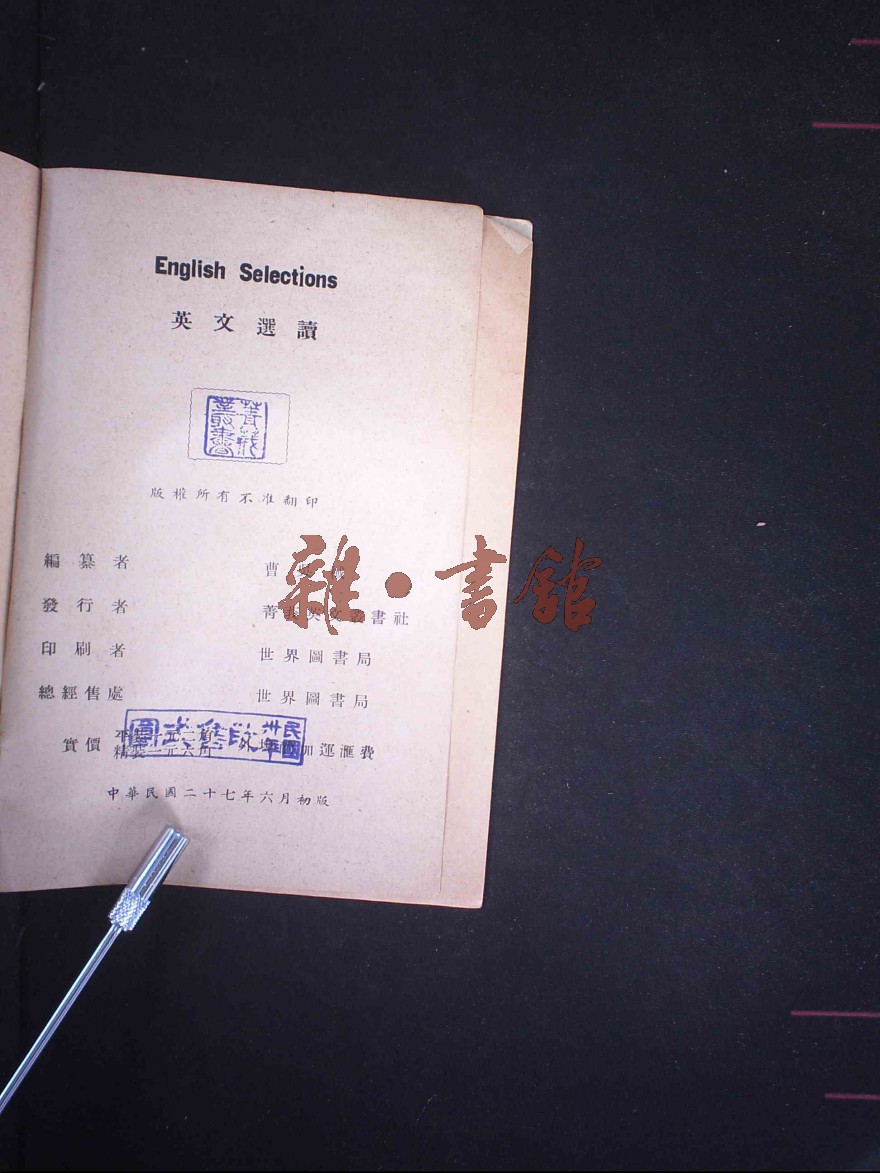 English Selections
英文選讀
菁莪叢書
版權所有不准翻印
編纂者 曹
發行者 菁莪英文叢書社
印刷者 世界圖書局
總經售處 世界圖書局
實價 平裝一元二角 精裝一元六角 外埠酌加運滙費
民國卅年
中華民國二十七年六月初版
雜·書館